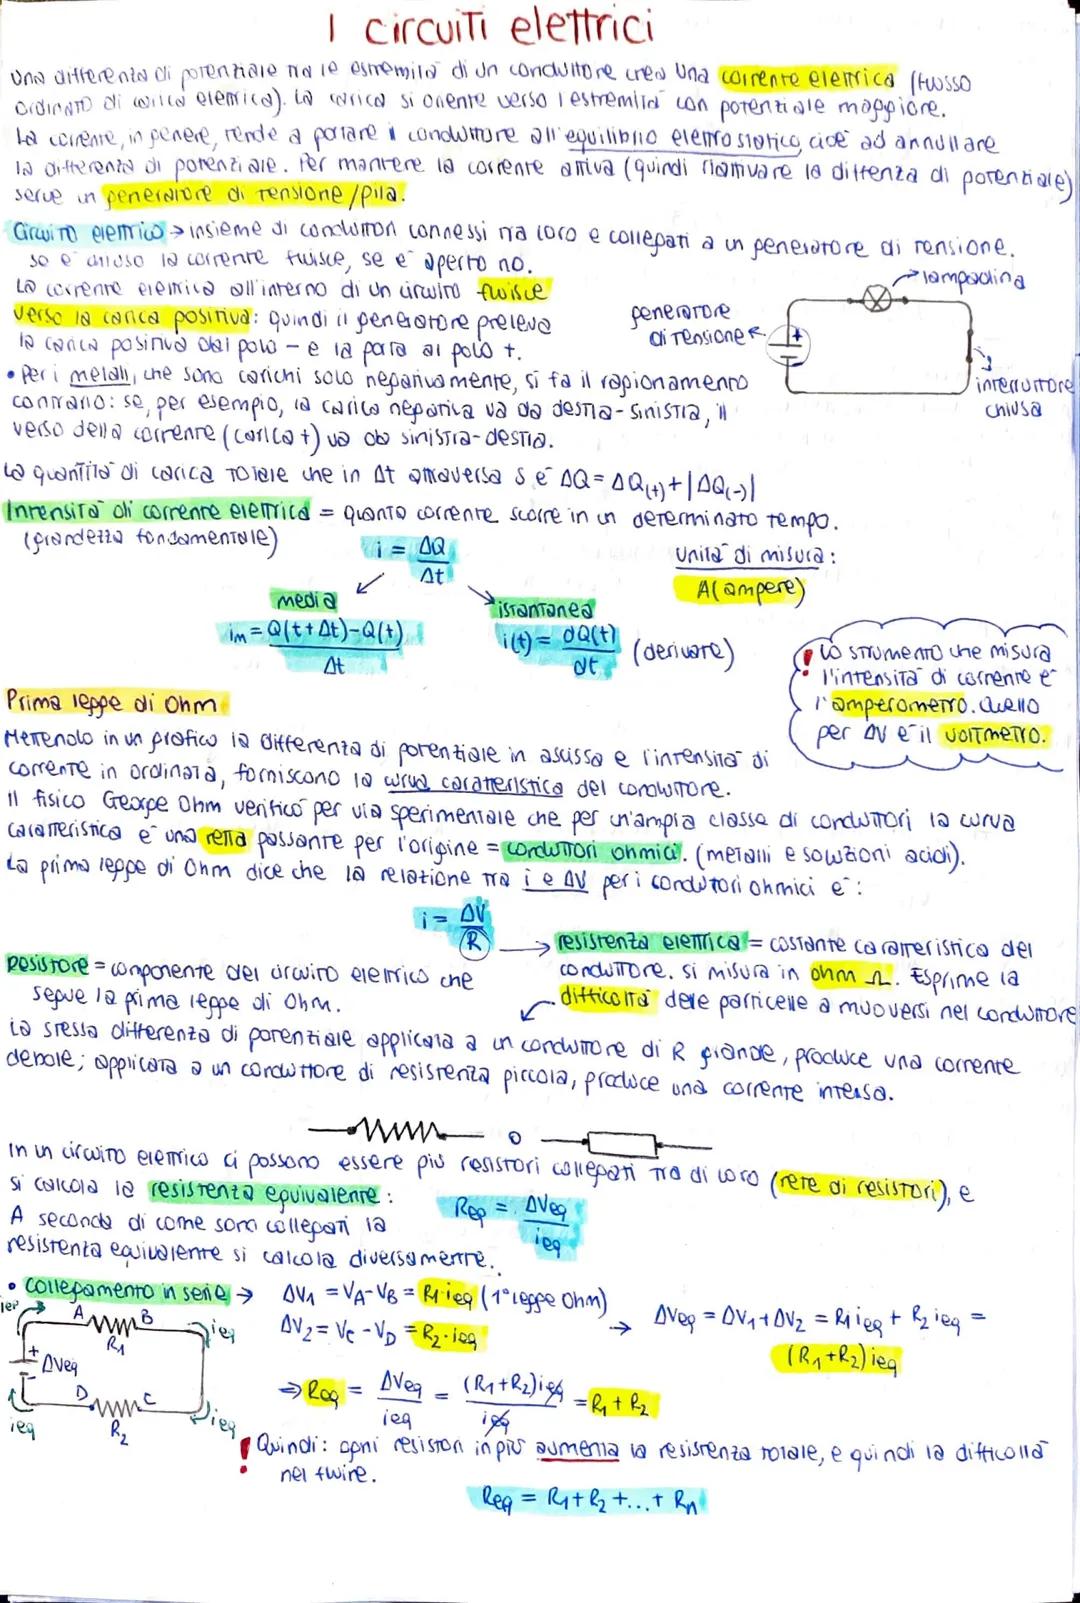 I circuiti elettrici
Una differenza di potenziale tra le estremità di un conduttore crea una corrente elettrica (flusso
ordinato di carica elettrica). La carica si oriente verso l'estremità con potenziale maggiore.
La corrente, in genere, tende a portare il conduttore all'equilibrio elettrostatico, cioè ad annullare
la differenza di potenziale. Per mantere la corrente attiva (quindi riattivare la diffenza di potenziale)
serve un generatore di tensione/pila.
Circuito elettrico → insieme di conduttori connessi tra loro e collegati a un generatore di tensione.
se è chiuso la corrente fluisce, se è aperto no.
La corrente elettrica all'interno di un circuito fluisce
verso la carica positiva: quindi il generatore preleva
la carica positiva dal polo - e la porta al polo +.
generatore
di tensione
+
lampadina
interruttore
chiuso
• Per i metalli, che sono carichi solo negativamente, si fa il ragionamento
contrario: se, per esempio, la carica negativa va da destra-sinistra, il
verso della corrente (carica +) va da sinistra-destra.
La quantità di carica totale che in Δt attraversa S è ΔQ = ΔQ(+) + |ΔQ(-)|
Intensità di corrente elettrica = quanta corrente scorre in un determinato tempo.
(grandezza fondamentale)
i = ΔQ/Δt
Unità di misura:
A (ampere)
media
im = Q(t+Δt)-Q(t)/Δt
istantanea
i(t) = dQ(t)/dt (derivate)
! Lo strumento che misura
l'intensità di corrente è
l'amperometro. Quello
per ΔV è il voltmetro.
Prima legge di Ohm
Mettendo in un grafico la differenza di potenziale in ascissa e l'intensità di
corrente in ordinata, forniscono la curva caratteristica del conduttore.
Il fisico George Ohm verificò per via sperimentale che per un'ampia classe di conduttori la curva
caratteristica è una retta passante per l'origine = conduttori ohmici. (metalli e soluzioni acidi).
La prima legge di Ohm dice che la relazione tra i e ΔV per i conduttori ohmici è:
i = ΔV/R
→ resistenza elettrica = costante caratteristica del
conduttore. Si misura in ohm Ω. Esprime la
difficoltà dele particelle a muoversi nel conduttore
Resistore = componente del circuito elettrico che
segue la prima legge di Ohm.
La stessa differenza di potenziale applicata a un conduttore di R grande, produce una corrente
debole; applicata a un conduttore di resistenza piccola, produce una corrente intensa.
o
In un circuito elettrico ci possono essere più resistori collegati tra di loro (rete di resistori), e
si calcola la resistenza equivalente:
Req = ΔVeq/ieq
A seconda di come sono collegati la
resistenza equivalente si calcola diversamente.
• Collegamento in serie →
ΔV1 = VA-VB = R1·ieq (1° legge Ohm)
ΔV2 = VC-VD = R2·ieq
→ ΔVeq = ΔV1+ΔV2 = R1ieq + R2ieq =
(R1+R2)ieq
ieq
A
B
R1
ieq
+
-
ΔVeq
D
C
R2
ieq
ieq
⇒ Req = ΔVeq/ieq = (R1+R2)ieq/ieq = R1+R2
! Quindi: ogni resistori in più aumenta la resistenza totale, e quindi la difficoltà
nel fluire.
Req = R1+R2+...+Rn